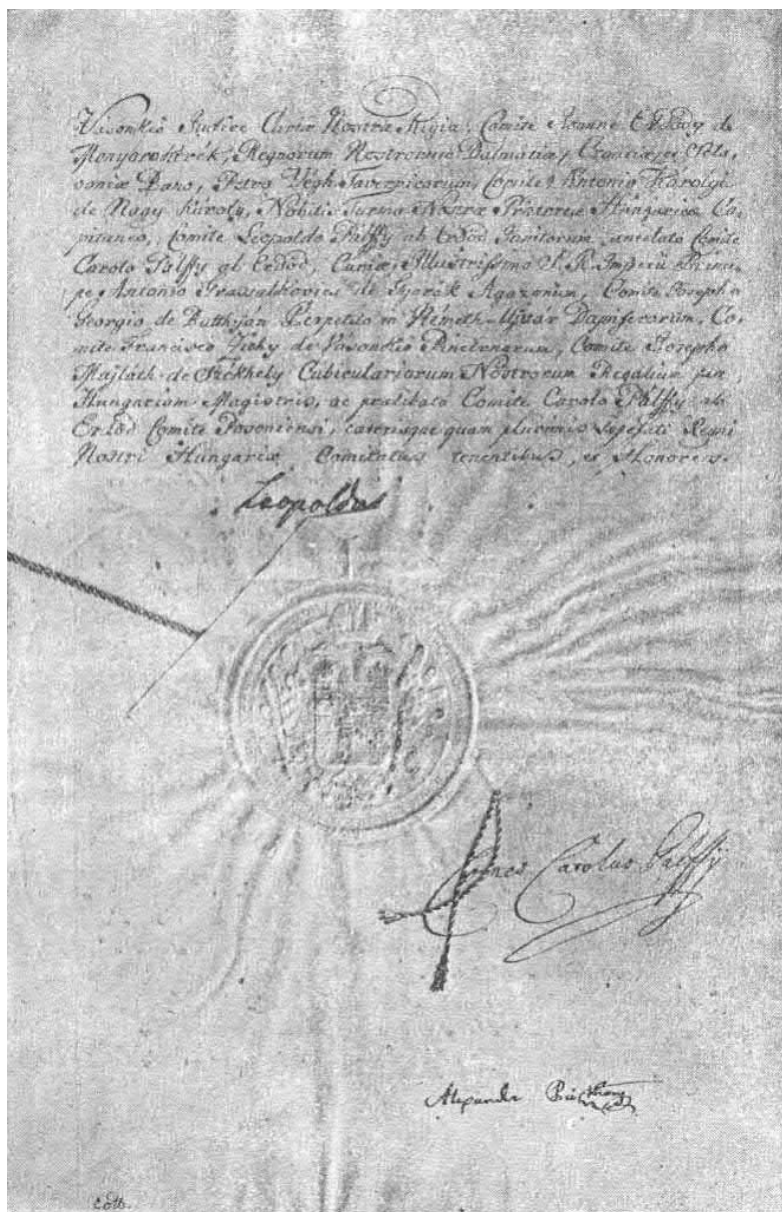 Vasonkiö Judice Curiæ Nostræ Regiæ, Comite Joanne Erdödy de
Monyorokerék, Regnorum Nostrorum Dalmatiæ, Croatiæ, et Scla-
voniæ Bano, Petro Végh Tavernicorum, Comite Antonio Károlyi
de Nagy Károly, Nobilis Turmæ Nostræ Prætoreæ Hungaricæ Ca-
pitaneo, Comite Leopoldo Pálffy ab Erdöd Janitorum, antelato Comite
Carolo Pálffy ab Erdöd, Curiæ, Illustrissimo S. R. Imperii Princi-
pe, Antonio Grassalkovics de Gyarák Agazonum, Comite Josepho
Georgio de Batthyán Perpetuo in Németh-Ujvár Dapiferorum, Co-
mite Francisco Zichy de Vasonkiö Pincernarum, Comite Josepho
Majláth de Székhely Cubiculariorum Nostrorum Regalium per
Hungariam Magistris, ac prælibato Comite Carolo Pálffy ab
Erdöd Comite Posoniensi, cæterisque quam plurimis sepefati Regni
Nostri Hungariæ Comitatus tenentibus, et Honores.
Leopoldus
Comes Carolus Pálffÿ
Alexander